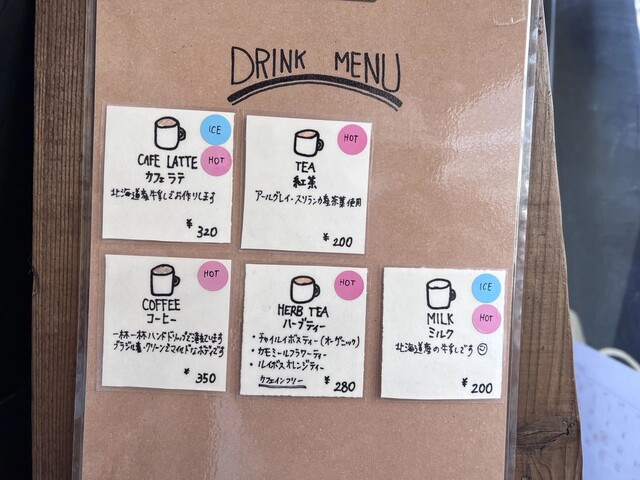 DRINK MENU
ICE
HOT
CAFE LATTE
カフェラテ
北海道産牛乳でお作りします
¥320
HOT
TEA
紅茶
アールグレイ・スリランカ産茶葉使用
¥200
HOT
COFFEE
コーヒー
一杯一杯ハンドドリップで淹れています
ブラジル産・クリーン&マイルドなボディです
¥350
HOT
HERB TEA
ハーブティー
・チャイルイボスティー(オーガニック)
・カモミールフラワーティー
・ルイボスオレンジティー
カフェインフリー
¥280
ICE
HOT
MILK
ミルク
北海道産の牛乳です
¥200